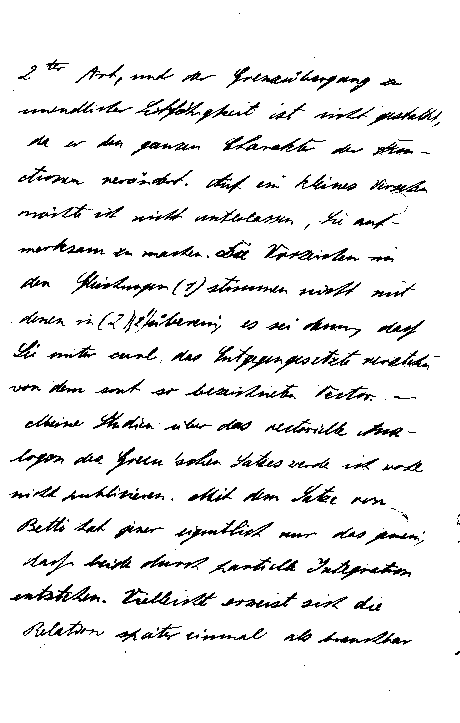 2ter Art, und der Grenzübergang zu
unendlicher Leitfähigkeit ist nicht gestattet,
da er den ganzen Charakter der Func-
tionen verändert. Auf ein kleines Versehen
möchte ich nicht unterlassen, Sie auf-
merksam zu machen. Die Vorzeichen in
den Gleichungen (1) stimmen nicht mit
denen in (2) überein; es sei denn, daß
Sie unter curl das Entgegengesetzte verstehen
von dem sonst so bezeichneten Vector. —
Meine Studien über das vectorielle Ana-
logon des Green'schen Satzes werde ich wohl
nicht publizieren. Mit dem Satze von
Betti hat jener eigentlich nur das gemein,
daß beide durch partielle Integration
entstehen. Vielleicht erweist sich die
Relation später einmal als brauchbar